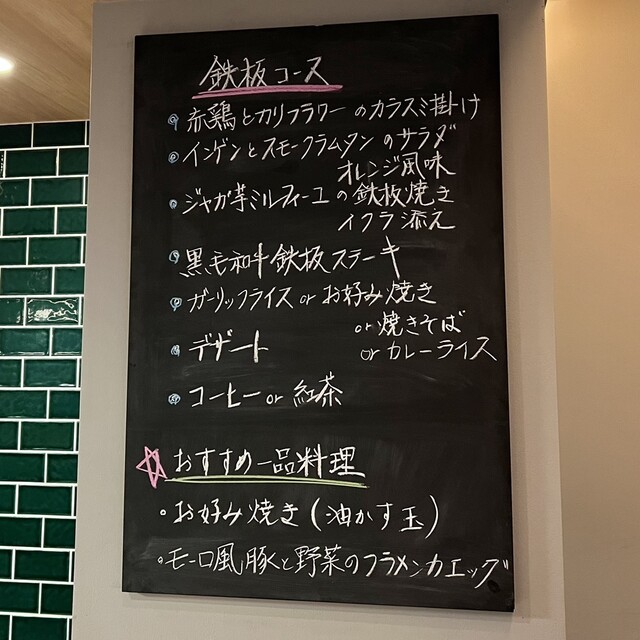 鉄板コース
赤鶏とカリフラワーのカラスミ掛け
インゲンとスモークラムタンのサラダ
オレンジ風味
ジャガ芋ミルフィーユの鉄板焼き
イクラ添え
黒毛和牛鉄板ステーキ
ガーリックライス or お好み焼き
or 焼きそば
デザート
or カレーライス
コーヒー or 紅茶
☆おすすめ一品料理
・お好み焼き(油かす玉)
・モーロ風豚と野菜のフラメンカエッグ